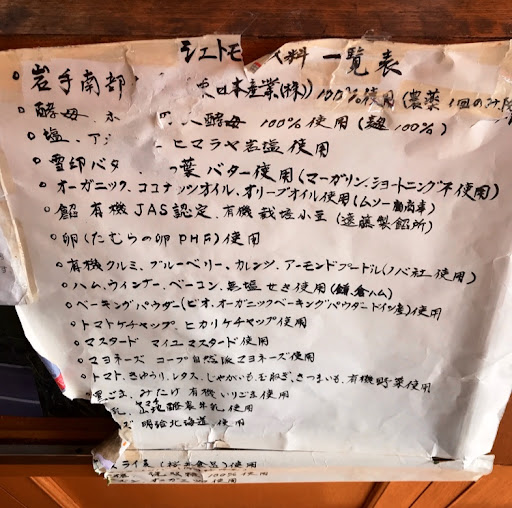 シェトモ 料一覧表
岩手南部 東日本産業(株)) 100%使用(農薬1回のみ
酵母、ホ 酵母 100%使用(麹100%)
塩、ア ーヒマラヤ岩塩使用
雪印バタ 葉バター使用(マーガリン、ショートニング不使用)
オーガニック、ココナッツオイル、オリーブオイル使用(ムソー
餡 有機JAS認定、有機栽培小豆(遠藤製餡所)
卵(たむらの卵PHF)使用
有機クルミ、ブルーベリー、カレンツ、アーモンドプードル(ノバ社使用)
ハム、ウィンナー、ベーコン、無塩せき使用(鎌倉ハム)
ベーキングパウダー(ビオ、オーガニックベーキングパウダードイツ産)使用
トマトケチャップ ヒカリケチャップ使用
マスタード マイユマスタード使用
マヨネーズ コープ自然派マヨネーズ使用
トマト、きゅうり、レタス、じゃがいも、玉ねぎ、さつまいも、有機野菜使用
黒ごま、みたけ有機いりごま使用
乳、 酪農牛乳使用
ズ 明治北海道使用
ライ麦( 食品)使用
100%使用